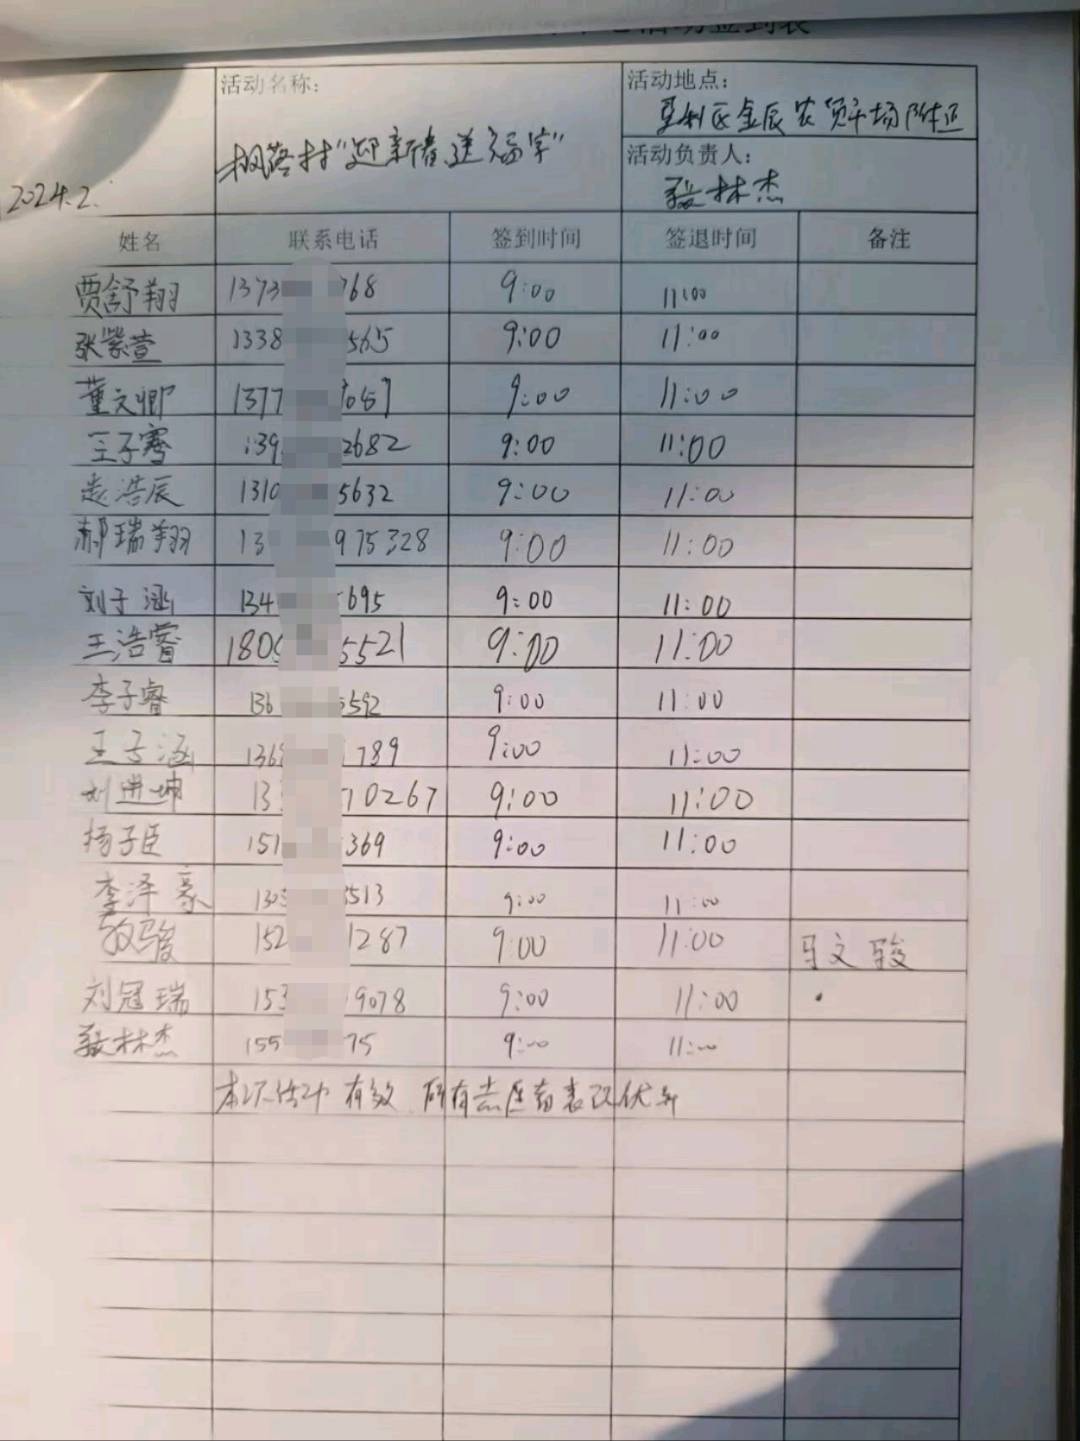 活动签到表
活动名称:
枫落村"迎新春送福字"
活动地点:
金辰农贸市场附近
活动负责人:
林杰
2024.2.
姓名 联系电话 签到时间 签退时间 备注
贾舒翔 1373 768 9:00 11:00
张紫萱 1338 565 9:00 11:00
董文卿 1377 9:00 11:00
王子骞 139 2682 9:00 11:00
袁浩辰 1310 5632 9:00 11:00
郝瑞翔 13 975328 9:00 11:00
刘子涵 134 695 9:00 11:00
王浩睿 180 5521 9:00 11:00
李子睿 136 592 9:00 11:00
王子涵 136 789 9:00 11:00
刘进坤 13 70267 9:00 11:00
杨子臣 151 369 9:00 11:00
李泽豪 130 513 9:00 11:00
骏 152 1287 9:00 11:00 马文骏
刘冠瑞 153 9078 9:00 11:00
林杰 155 75 9:00 11:00
本次活动有效 所有